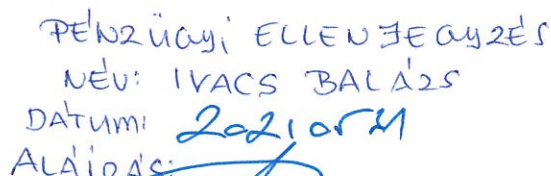 PÉNZÜGYI ELLENJEGYZÉS
NÉV: IVACS BALÁZS
DÁTUM:
ALÁÍRÁS: